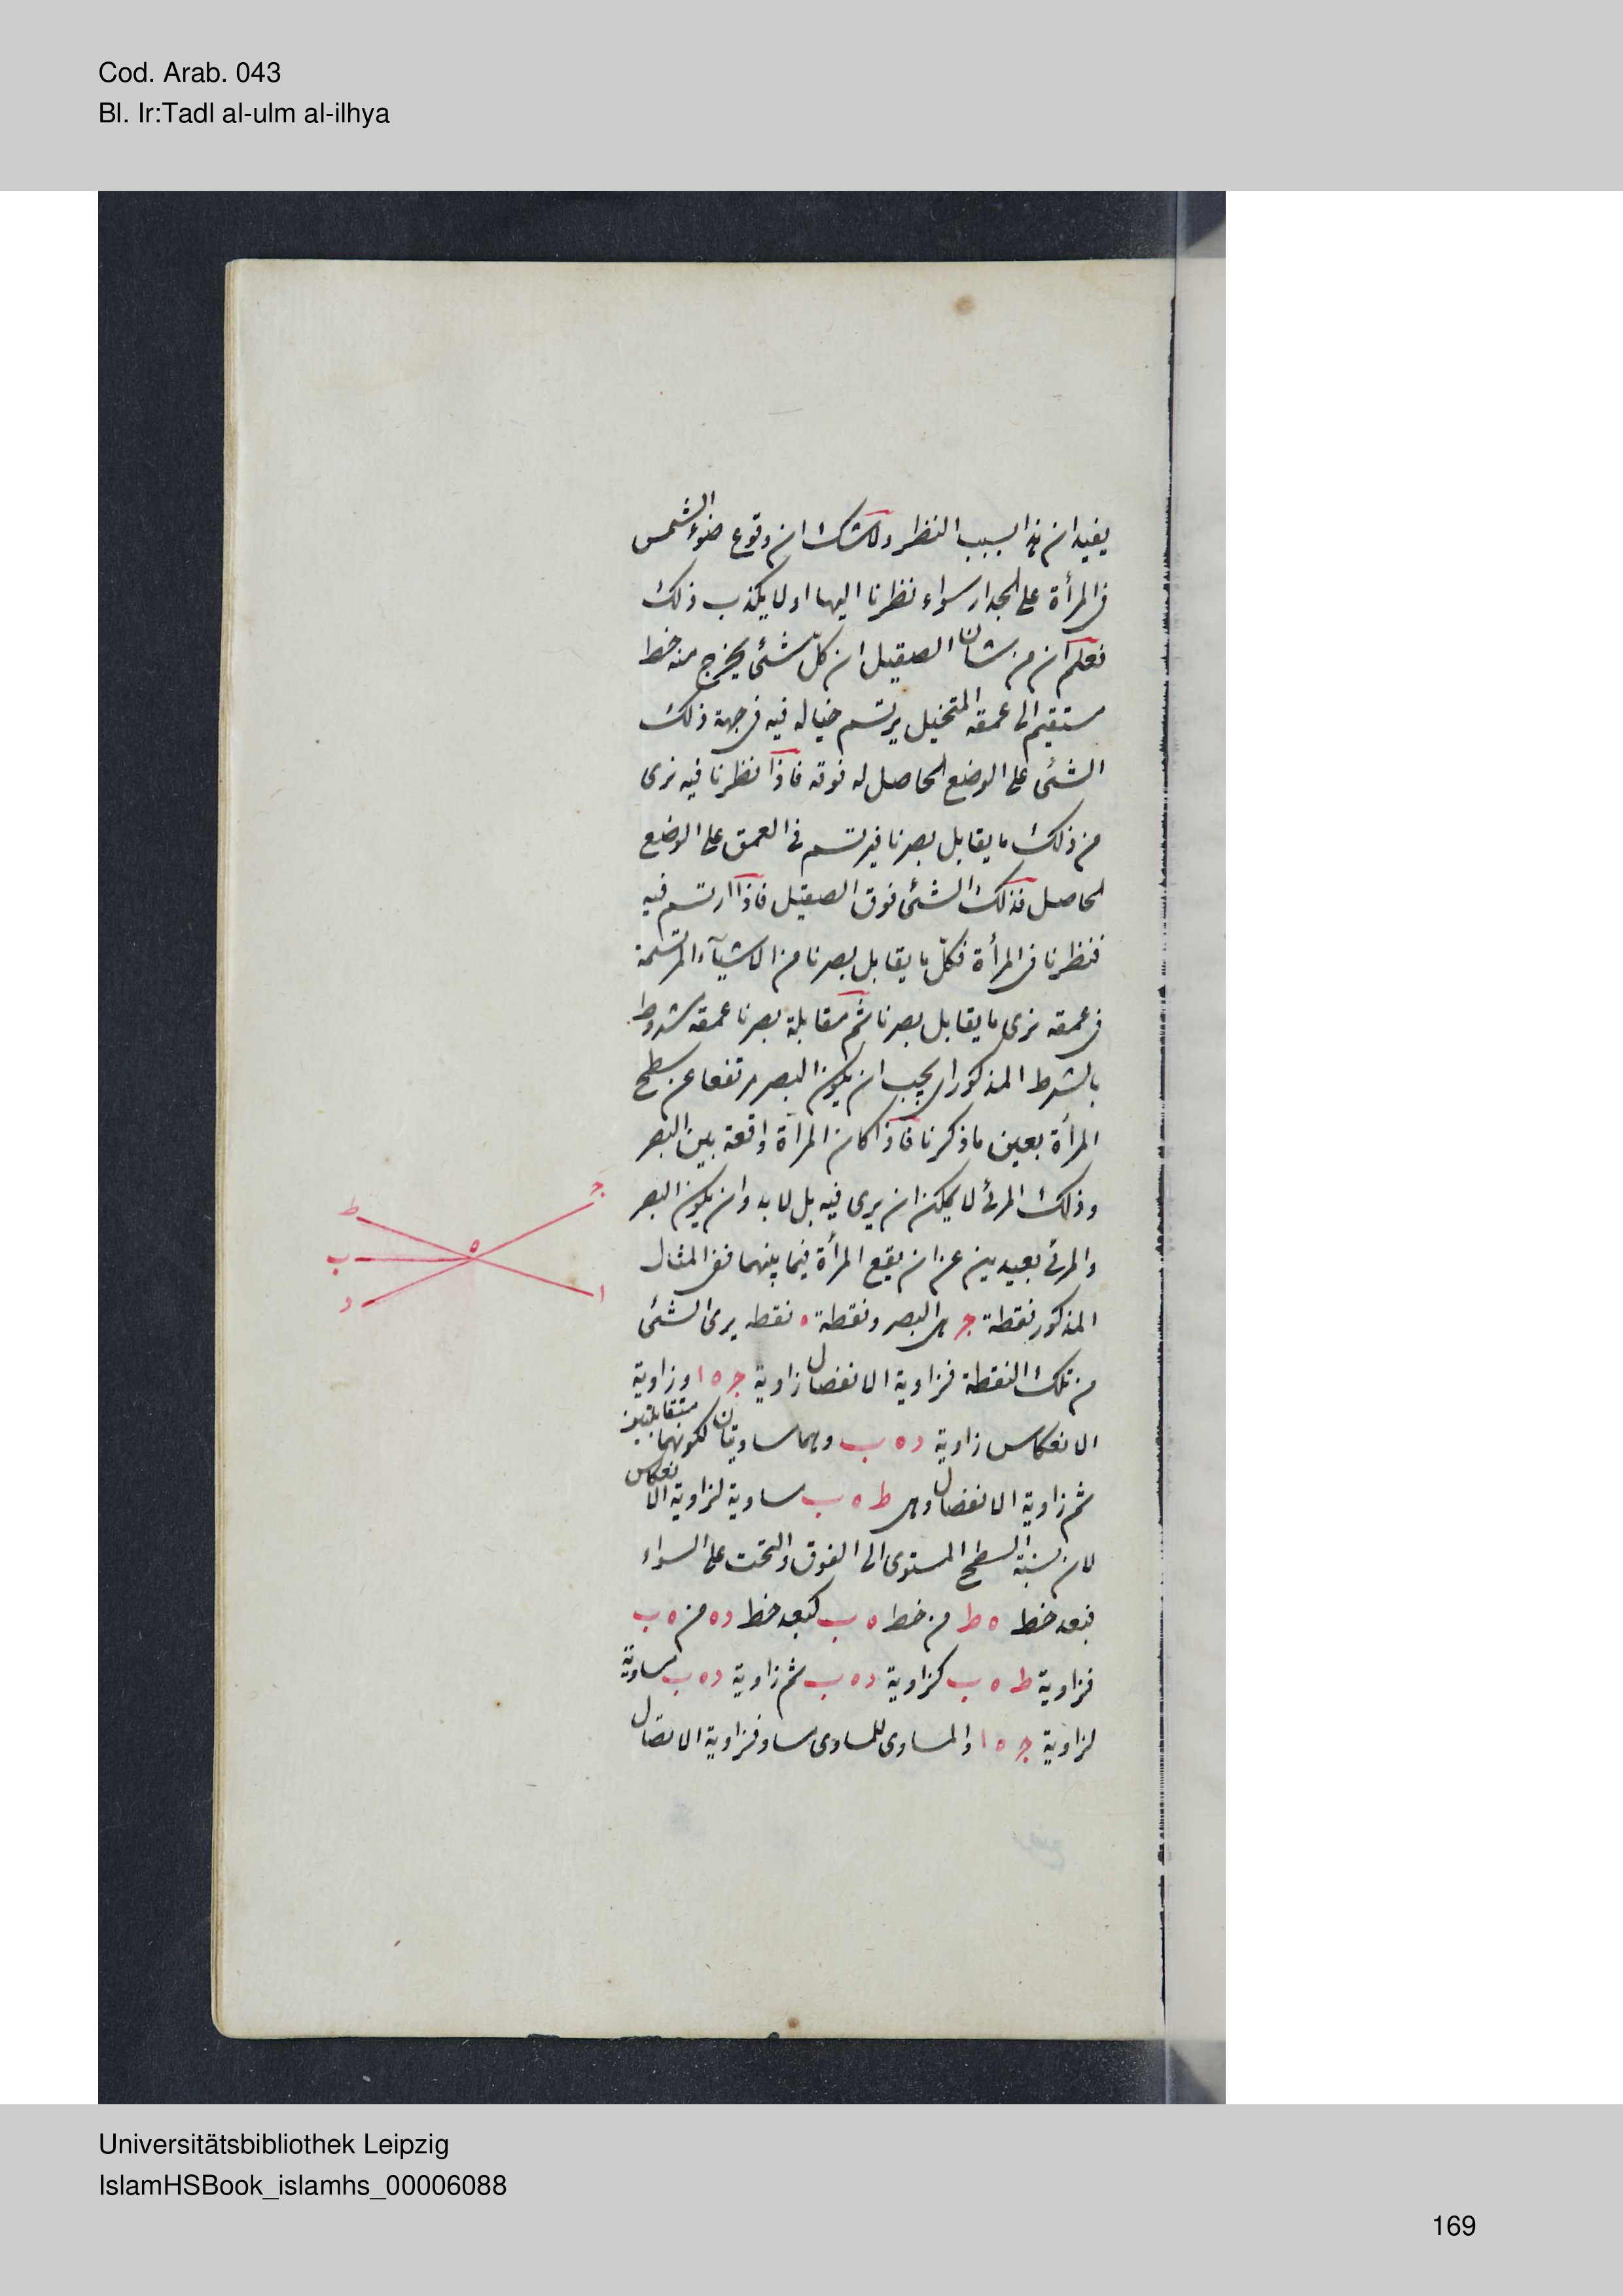 Cod. Arab. 043
Bl. Ir:Tadl al-ulm al-ilhya
يفيد ان هذا لسبب النظر ولاشك ان وقوع ضوء الشمس
فى المرأة على الجدار سواء نظرنا اليها او لا يكذب ذلك
نعلم ان من شان الصيقيل ان كلّ شئى يخرج منه خط
مستقيم الى عمقه المتخيل يرتسم خياله فيه فى جهة ذلك
الشئى على الوضع الحاصل له فوقه فاذا نظرنا فيه نرى
من ذلك ما يقابل بصرنا فيرتسم فى العمق على الوضع
الحاصل لذلك الشئى فوق الصقيل فاذا ارتسم فيه
فنظرنا فى المرأة فكلّ ما يقابل بصرنا من الاشيآء المرتسمة
فى عمقه نرى ما يقابل بصرنا ثم مقابلة بصرنا عمقه مشروط
بالشرط المذكور اى يجب ان يكون البصر مرتفعا عن سطح
المرأة بعين ما ذكرنا فاذا كان المرأة واقعة بين البصر
وذلك المرئى لا يمكن ان يرى فيه بل لا بد وان يكون البصر
والمرئى بعيدين عن ان يقع المرأة فيما بينهما ففى المثال
المذكور نقطة ج هى البصر ونقطة ه نقطه يرى الشئى
من تلك النقطة فزاوية الانفصال زاوية ج ه ا وزاوية
الانعكاس زاوية د ه ب وهما مساويتان لكونهما متقابلتين
ثم زاوية الانفصال وهى ط ه ب مساوية لزاوية الانعكاس
لان نسبة السطح المستوى الى الفوق والتحت على السواء
فبعد خط ه ط من خط ه ب كبعد خط د ه من ه ب
فزاوية ط ه ب كزاوية د ه ب ثم زاوية د ه ب مساوية
لزاوية ج ه ا والمساوى للمساوى مساو فزاوية الاتصال
ج
ط
ه
ب
د
ا
Universitätsbibliothek Leipzig
IslamHSBook_islamhs_00006088
169